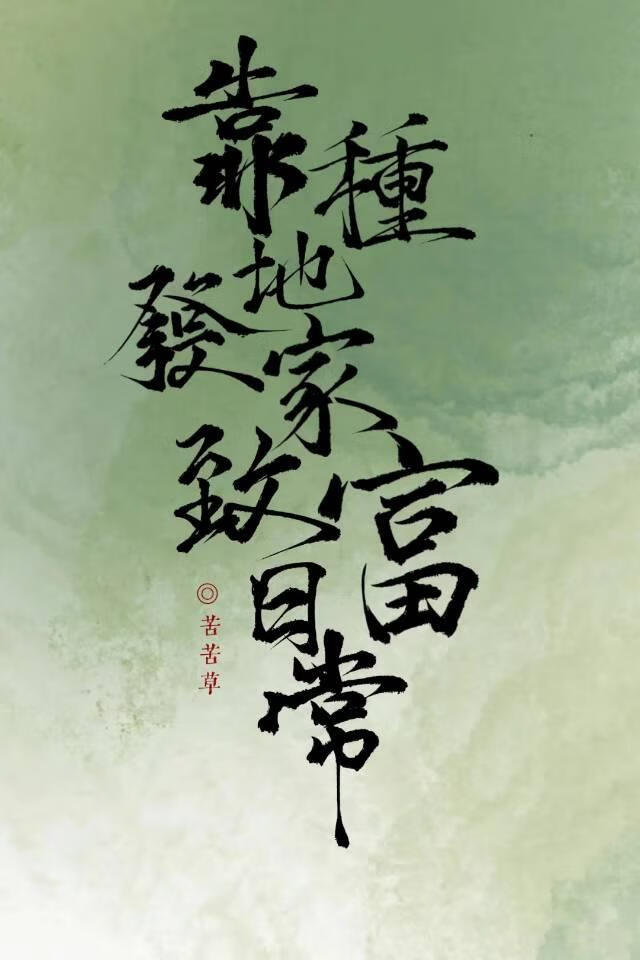 靠種地
發家
致富
日常
◎苦苦草